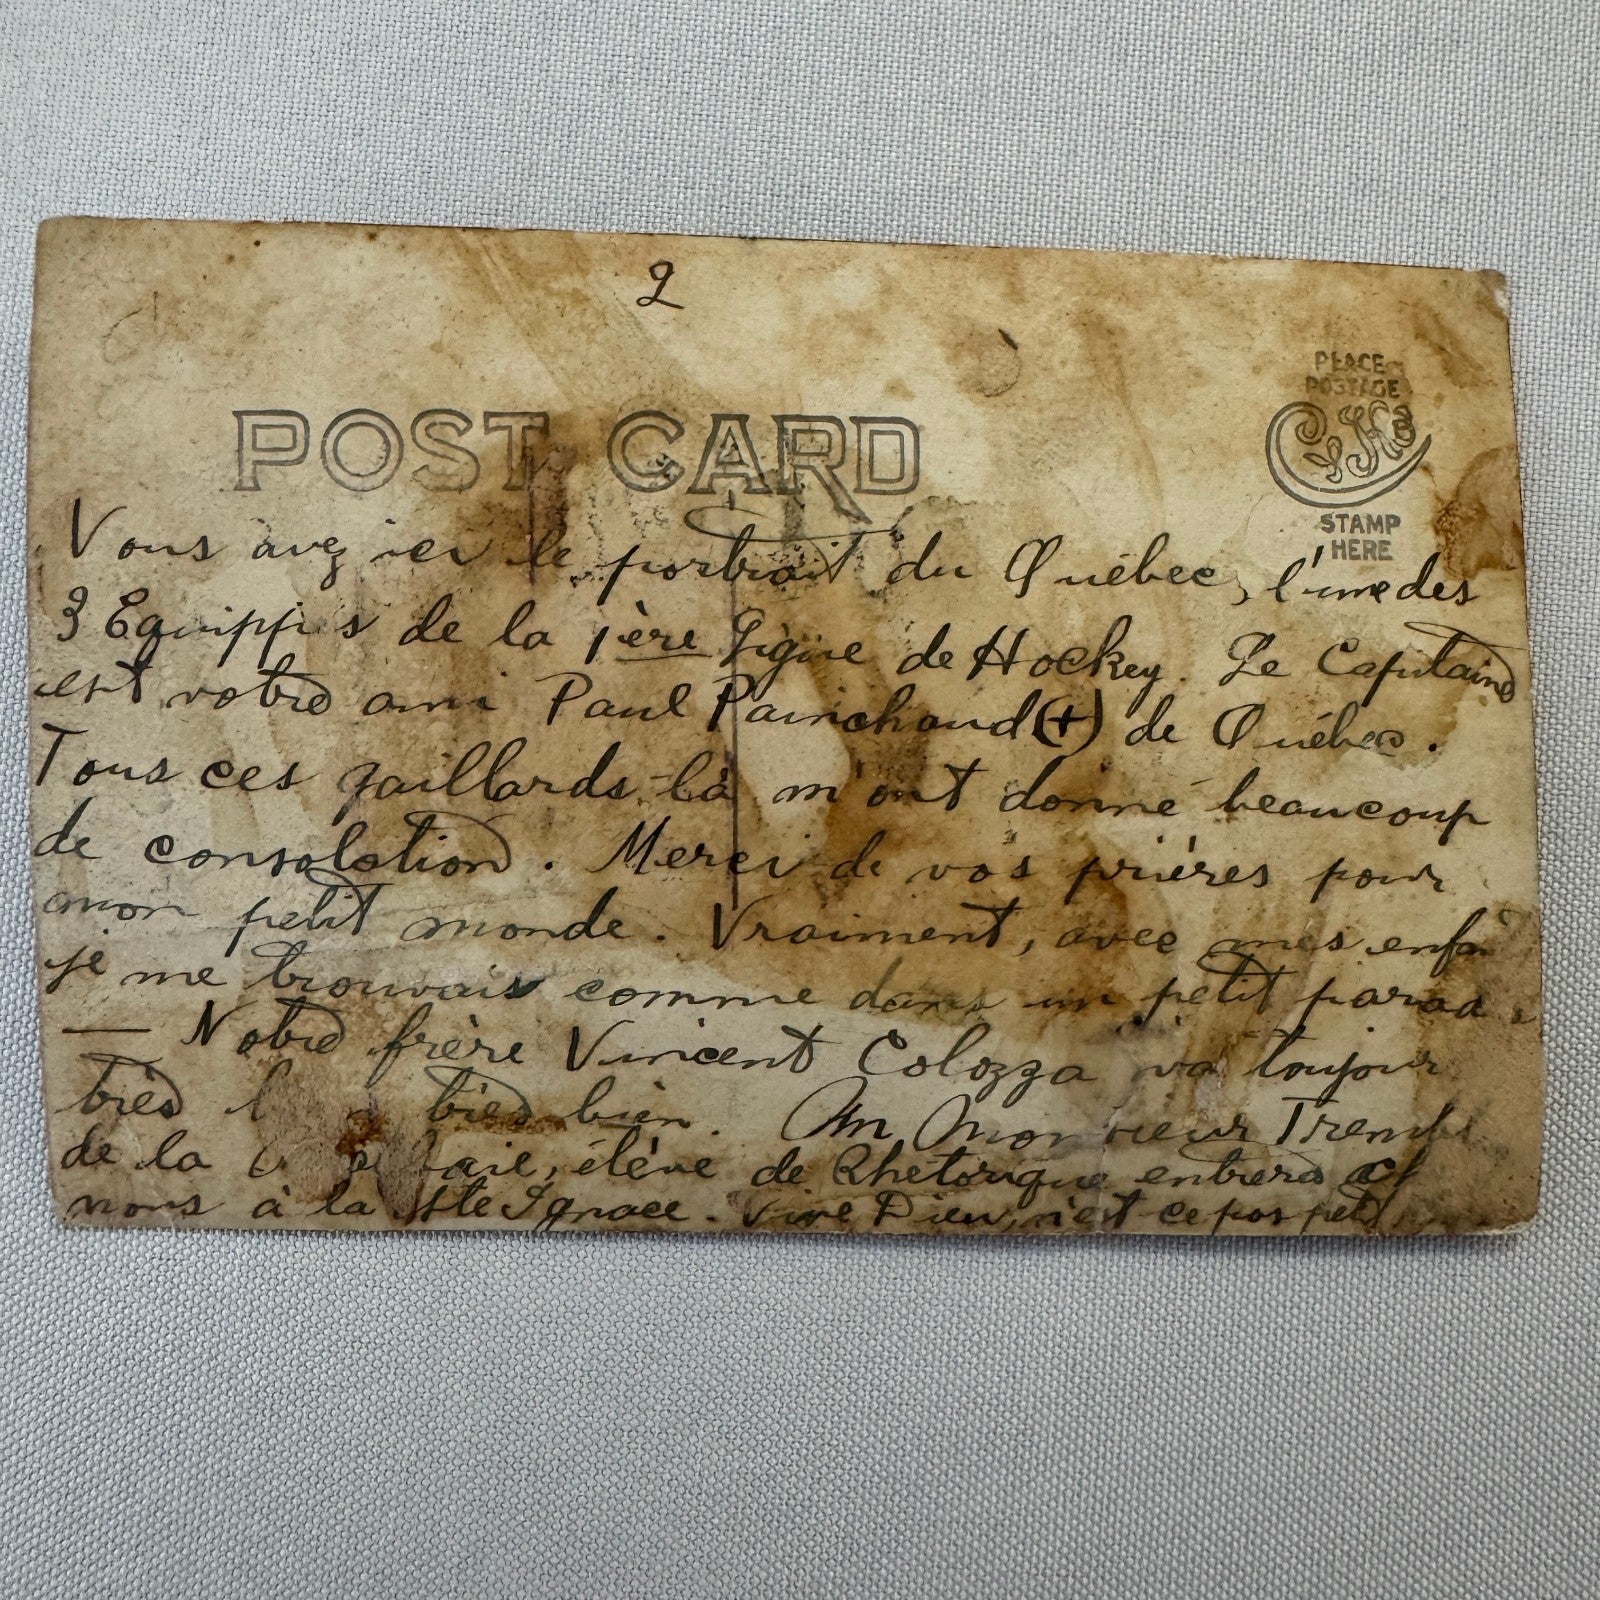 2
PLACE
POSTAGE
STAMP
HERE
POST CARD
Vous avez ici le portrait du Québec, l'une des
3 Equippes de la 1ère Ligue de Hockey. Le Capitaine
est votre ami Paul Painchaud (+) de Québec.
Tous ces gaillards-là m'ont donné beaucoup
de consolation. Merci de vos prières pour
mon petit monde. Vraiment, avec mes
je me trouvais comme dans un petit
— Notre frère Vincent Colozza va
très très bien. Un Monsieur
de la élève de Rhétorique entrera
nous à la Ste Ignace. Vive Dieu, n'est ce pas